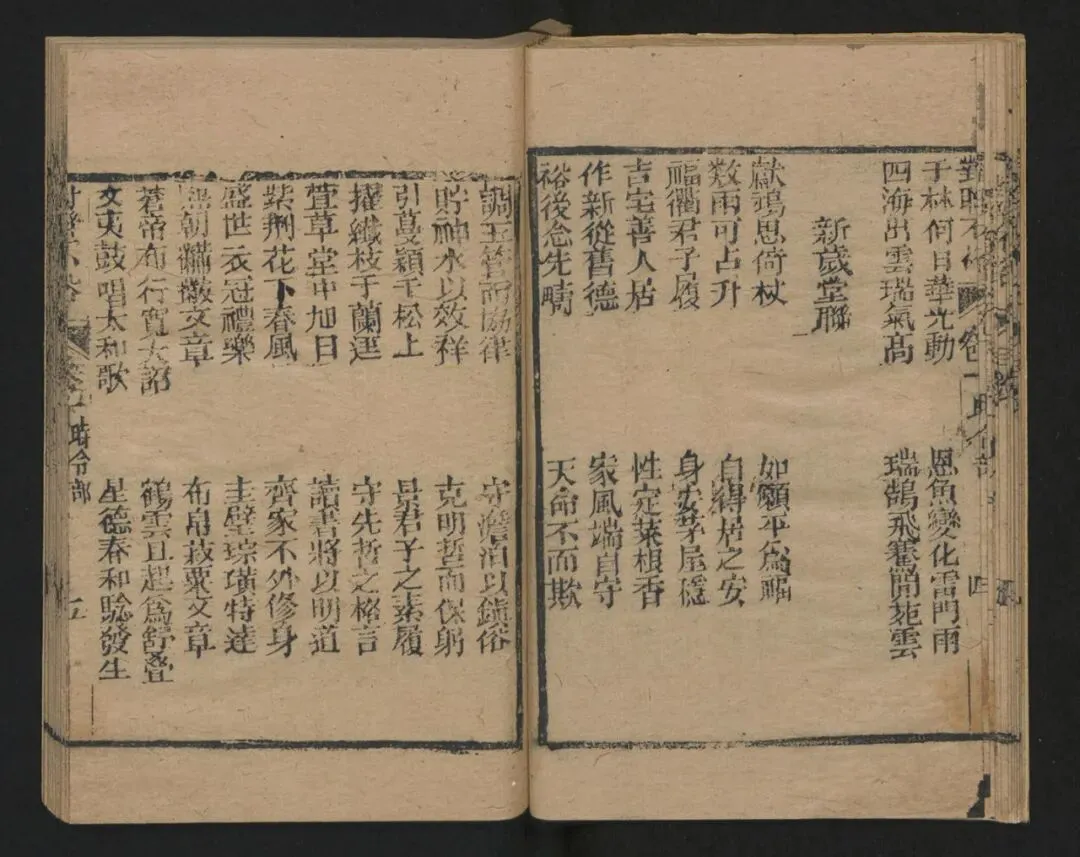 于林何日華光動
恩魚變化雷門雨
四海出雲瑞氣高
瑞鵠飛鶱開苑雲
新歲堂聯
獻鳩思倚杖
如願平為福
数雨可占升
自得居之安
福衢君子履
身安茅屋穩
吉宅善人居
性定菜根香
作新從舊德
家風端自守
裕後念先疇
天命不而欺
卷一
時令部
四
調玉管而協律
守澹泊以鎮俗
貯神水以效祥
克明哲而保躬
引蔓穎于松上
景君子之素履
擢纖枝于蘭逕
守先哲之格言
萱草堂中旭日
讀書將以明道
紫荆花下春風
齊家不外修身
盛世衣冠禮樂
圭璧琮璜特達
朝黼黻文章
布帛菽粟文章
蒼帝布行寬大詔
鶴雲且起為舒疊
夷鼓唱太和歌
星德春和驗發生
時令部
五